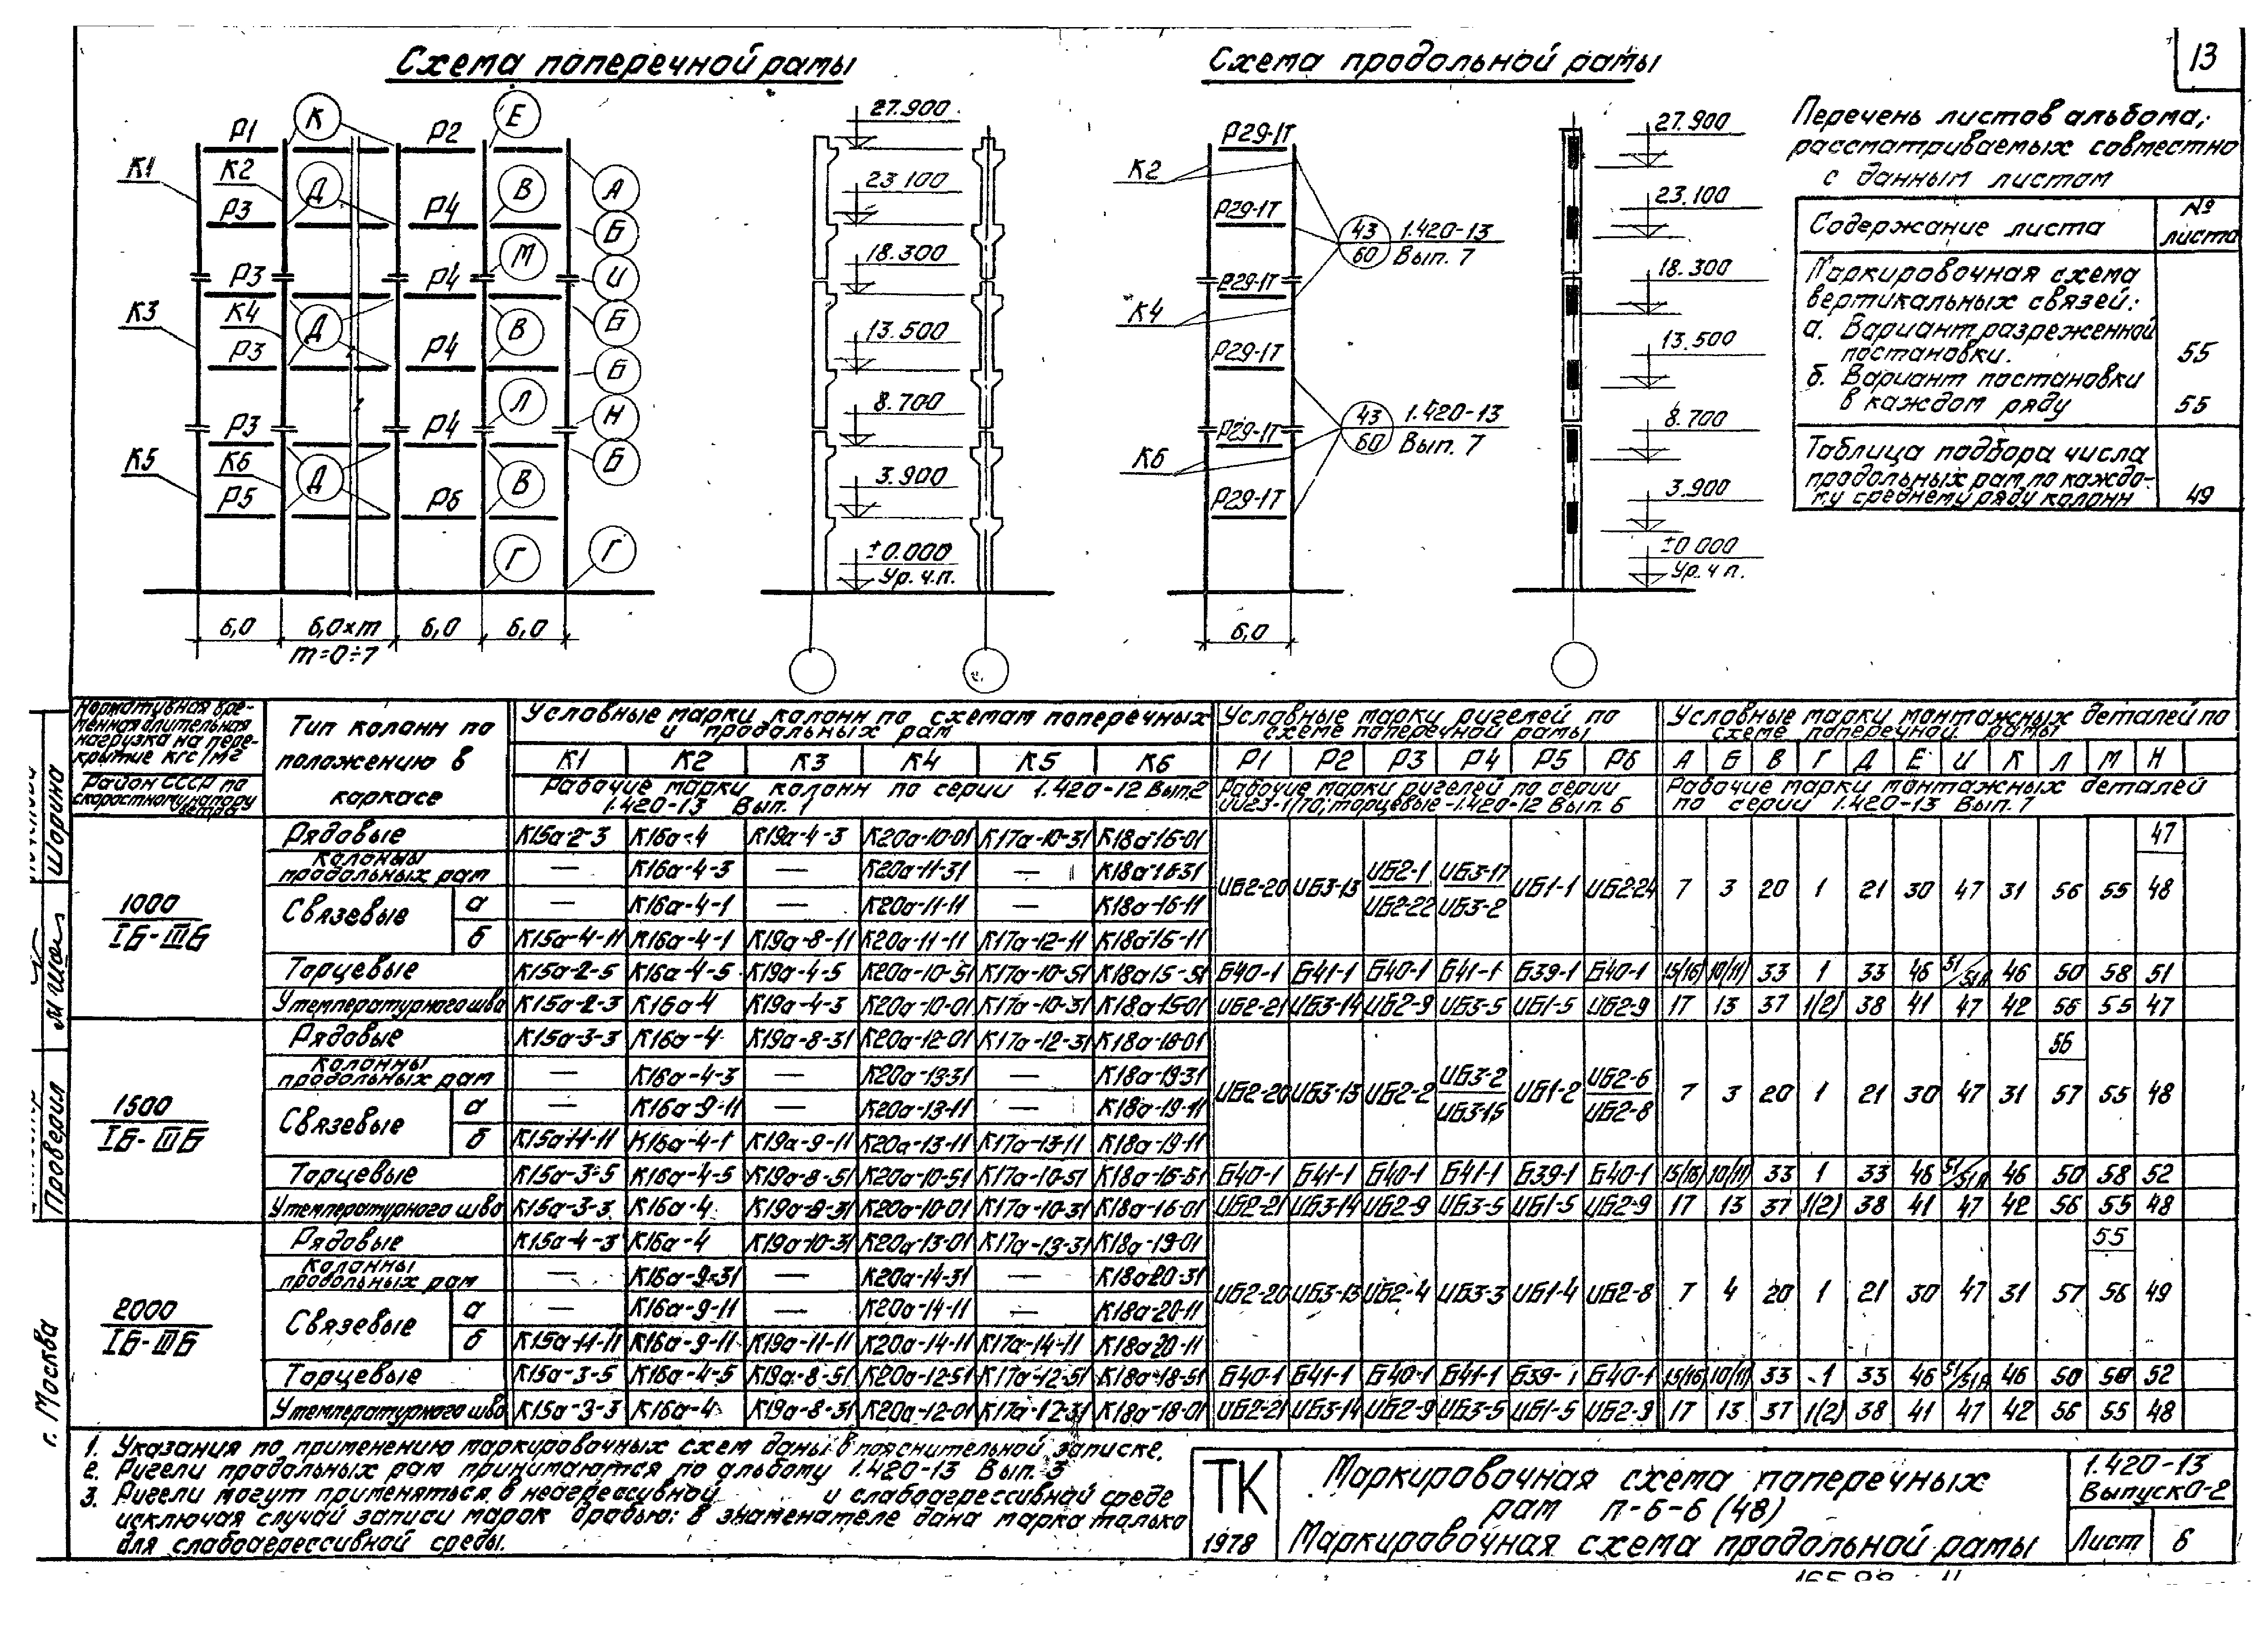 Схема поперечной рамы
Схема продольной рамы
13
К1
К3
К5
Р1
К
Р2
Е
К2
Д
Р3
Р4
В
А
Б
М
И
Р3
Р4
К4
Д
В
Б
Р3
Р4
Б
Л
Н
Р3
Р4
К6
Д
В
Б
Р5
Р6
Г
Г
6,0
6,0×m
6,0
6,0
m=0÷7
27.900
23.100
18.300
13.500
8.700
3.900
±0.000
Ур. ч.п.
К2
К4
К6
Р29-1Т
Р29-1Т
Р29-1Т
Р29-1Т
Р29-1Т
Р29-1Т
43
60
1.420-13
Вып. 7
43
60
1.420-13
Вып. 7
6,0
27.900
23.100
18.300
13.500
8.700
3.900
±0.000
Ур. ч.п.
Перечень листов альбома,
рассматриваемых совместно
с данным листом
Содержание листа
№ листа
Маркировочная схема
вертикальных связей:
а. Вариант разреженной
постановки.
55
б. Вариант постановки
в каждом ряду
55
Таблица подбора числа
продольных рам по каждо-
му среднему ряду колонн
49
Нормативная вре-
менная длительная
нагрузка на пере-
крытие кгс/м2
Район СССР по
скоростному напору
ветра
Тип колонн по
положению в
каркасе
Условные марки колонн по схемам поперечных
и продольных рам
К1 К2 К3 К4 К5 К6
Рабочие марки колонн по серии 1.420-12 Вып.2
1.420-13 Вып. 1
Условные марки ригелей по
схеме поперечной рамы
Р1 Р2 Р3 Р4 Р5 Р6
Рабочие марки ригелей по серии
ИИ23-1/70; торцевые-1.420-12 Вып. 6
Условные марки монтажных деталей по
схеме поперечной рамы
А Б В Г Д Е И К Л М Н
Рабочие марки монтажных деталей
по серии 1.420-13 Вып. 7
1000
IБ-IIIБ
Рядовые К15а-2-3 К16а-4 К19а-4-3 К20а-10-01 К17а-10-31 К18а-15-01
Колонны
продольных рам — К16а-4-3 — К20а-11-31 — К18а-16-31
Связевые
а — К16а-4-1 — К20а-11-11 — К18а-16-11
б К15а-4-11 К16а-4-1 К19а-8-11 К20а-11-11 К17а-12-11 К18а-16-11
ИБ2-20 ИБ3-13 ИБ2-1 / ИБ2-22 ИБ3-17 / ИБ3-2 ИБ1-1 ИБ2-24 7 3 20 1 21 30 47 31 56 55 47 / 48
Торцевые К15а-2-5 К16а-4-5 К19а-4-5 К20а-10-51 К17а-10-51 К18а15-51 Б40-1 Б41-1 Б40-1 Б41-1 Б39-1 Б40-1 15/16) 10/11) 33 1 33 46 51/51А 46 50 58 51
У температурного шва К15а-2-3 К16а-4 К19а-4-3 К20а-10-01 К17а-10-31 К18а-15-01 ИБ2-21 ИБ3-14 ИБ2-9 ИБ3-5 ИБ1-5 ИБ2-9 17 13 37 1(2) 38 41 47 42 56 55 47
1500
IБ-IIIБ
Рядовые К15а-3-3 К16а-4 К19а-8-31 К20а-12-01 К17а-12-31 К18а-18-01
Колонны
продольных рам — К16а-4-3 — К20а-13-31 — К18а-19-31
Связевые
а — К16а-9-11 — К20а-13-11 — К18а-19-11
б К15а-11-11 К16а-4-1 К19а-9-11 К20а-13-11 К17а-13-11 К18а-19-11
ИБ2-20 ИБ3-13 ИБ2-2 ИБ3-2 / ИБ3-15 ИБ1-2 ИБ2-6 / ИБ2-8 7 3 20 1 21 30 47 31 56 / 57 55 48
Торцевые К15а-3-5 К16а-4-5 К19а-8-51 К20а-10-51 К17а-10-51 К18а-16-51 Б40-1 Б41-1 Б40-1 Б41-1 Б39-1 Б40-1 15/16) 10/11) 33 1 33 46 51/51А 46 50 58 52
У температурного шва К15а-3-3 К16а-4 К19а-8-31 К20а-10-01 К17а-10-31 К18а-16-01 ИБ2-21 ИБ3-14 ИБ2-9 ИБ3-5 ИБ1-5 ИБ2-9 17 13 37 1(2) 38 41 47 42 56 55 48
2000
IБ-IIIБ
Рядовые К15а-4-3 К16а-4 К19а-10-31 К20а-13-01 К17а-13-31 К18а-19-01
Колонны
продольных рам — К16а-9-31 — К20а-14-31 — К18а20-31
Связевые
а — К16а-9-11 — К20а-14-11 — К18а-20-11
б К15а-11-11 К16а-9-11 К19а-11-11 К20а-14-11 К17а-14-11 К18а20-11
ИБ2-20 ИБ3-13 ИБ2-4 ИБ3-3 ИБ1-4 ИБ2-8 7 4 20 1 21 30 47 31 57 55 / 56 49
Торцевые К15а-3-5 К16а-4-5 К19а-8-51 К20а-12-51 К17а-12-51 К18а-18-51 Б40-1 Б41-1 Б40-1 Б41-1 Б39-1 Б40-1 15/16) 10/11) 33 1 33 46 51/51А 46 50 58 52
У температурного шва К15а-3-3 К16а-4 К19а-8-31 К20а-12-01 К17а-12-31 К18а-18-01 ИБ2-21 ИБ3-14 ИБ2-9 ИБ3-5 ИБ1-5 ИБ2-9 17 13 37 1(2) 38 41 47 42 56 55 48
1. Указания по применению маркировочных схем даны в пояснительной записке.
2. Ригели продольных рам принимаются по альбому 1.420-13 Вып. 3
3. Ригели могут применяться в неагрессивной и слабоагрессивной среде
исключая случай записи марок дробью: в знаменателе дана марка только
для слабоагрессивной среды.
ТК
1978
Маркировочная схема поперечных
рам п-6-6 (48)
Маркировочная схема продольной рамы
1.420-13
Выпуск 0-2
Лист 6
Шорина
Проверил
г. Москва